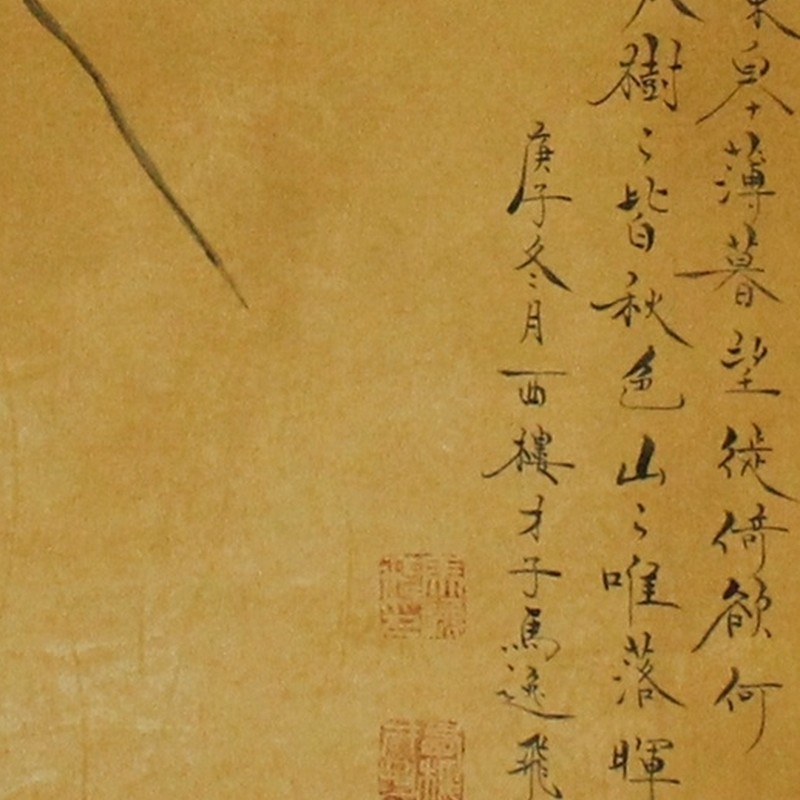 東皋薄暮望徙倚欲何
樹〻皆秋色山〻唯落暉
庚子冬月西樓才子馬逸飛